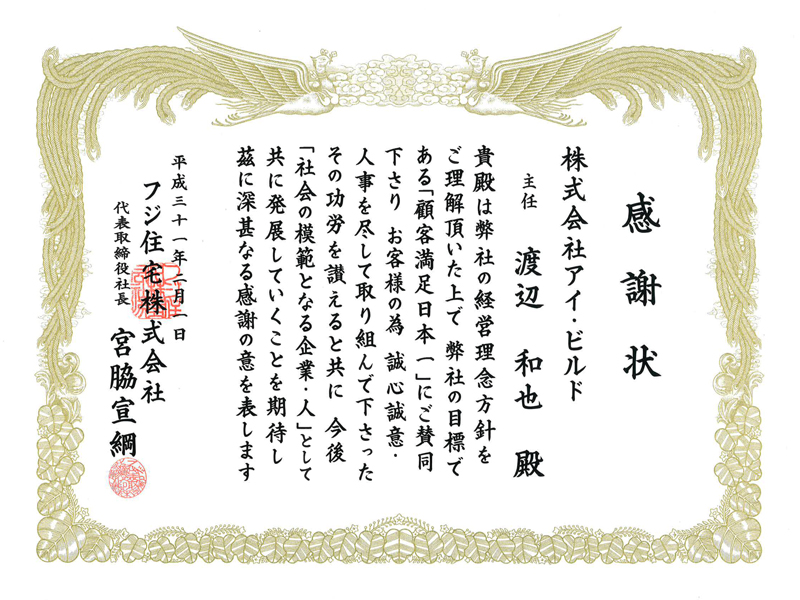 感謝状
株式会社アイ・ビルド
主任 渡辺 和也 殿
貴殿は弊社の経営理念方針を
ご理解頂いた上で 弊社の目標で
ある「顧客満足日本一」にご賛同
下さり お客様の為 誠心誠意・
人事を尽して取り組んで下さった
その功労を讃えると共に 今後
「社会の模範となる企業・人」として
共に発展していくことを期待し
茲に深甚なる感謝の意を表します
平成三十一年二月一日
フジ住宅株式会社
代表取締役社長 宮脇宣綱